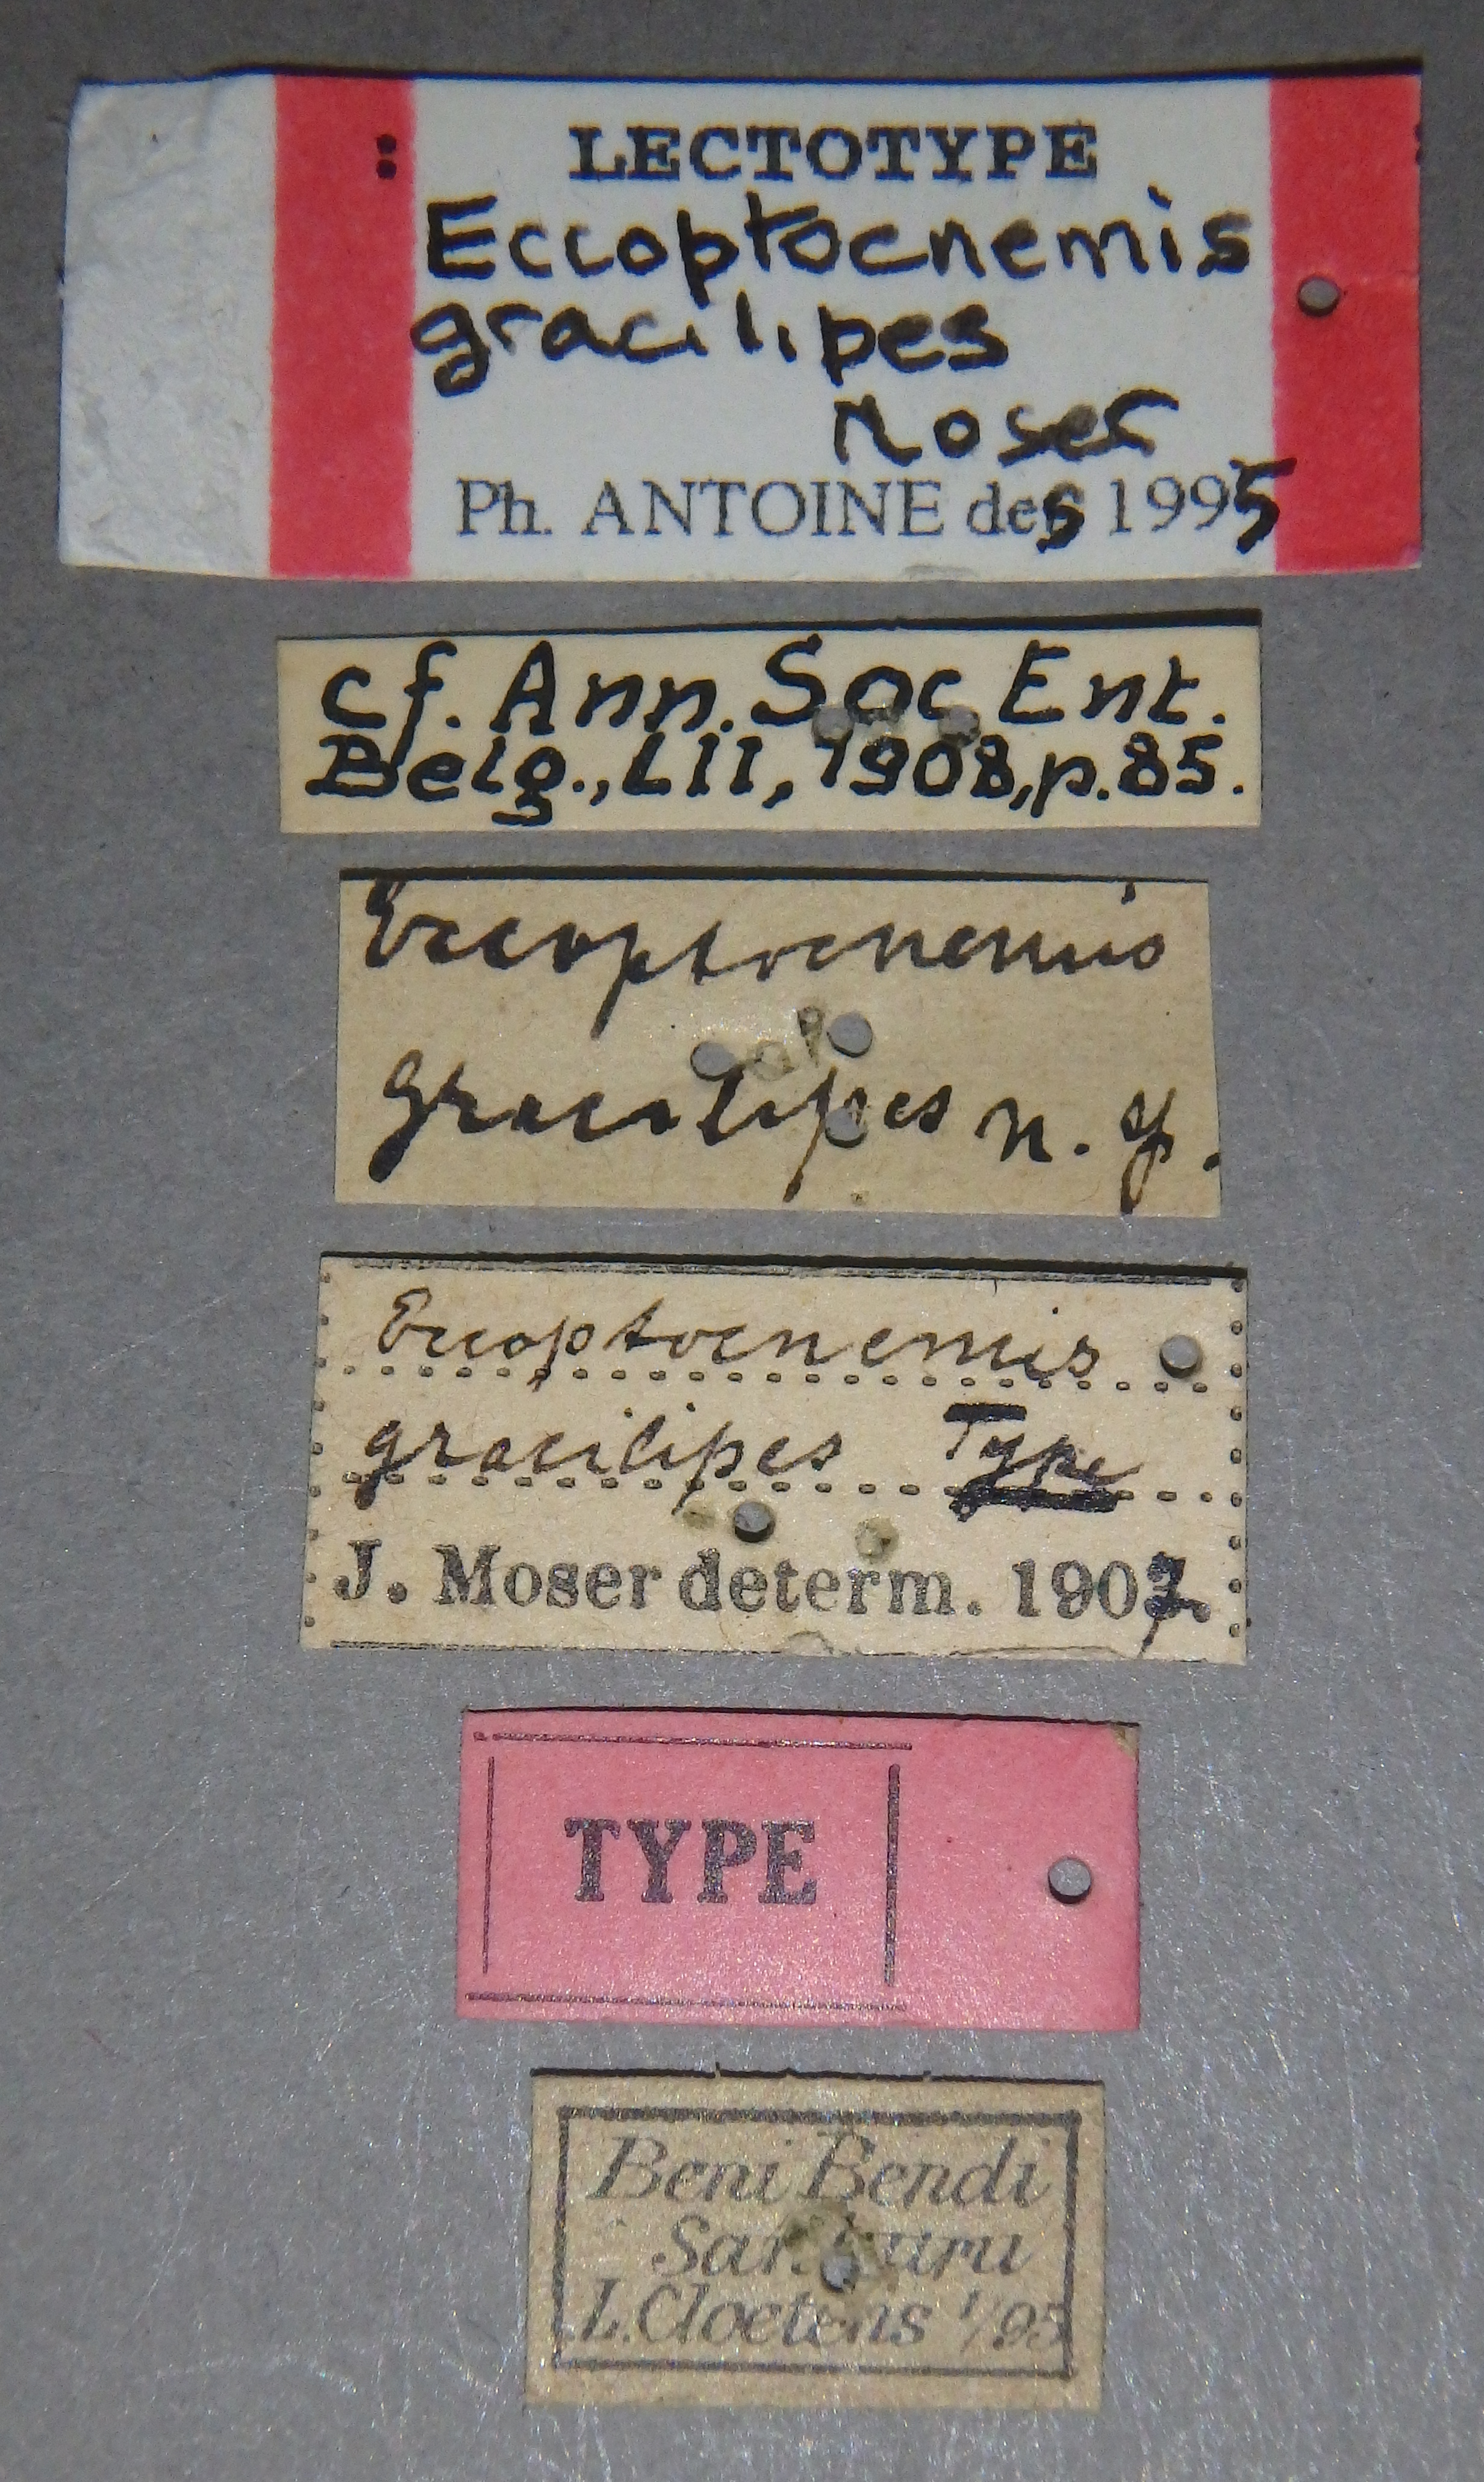 LECTOTYPE
Eccoptocnemis
gracilipes
Moser
Ph. ANTOINE des 1995
cf. Ann. Soc Ent.
Belg., LII, 1908, p. 85.
Eccoptocnemis
gracilipes n. sp.
Eccoptocnemis
gracilipes Type
J. Moser determ. 1907.
TYPE
Beni Bendi
L. Cloetens 1/95